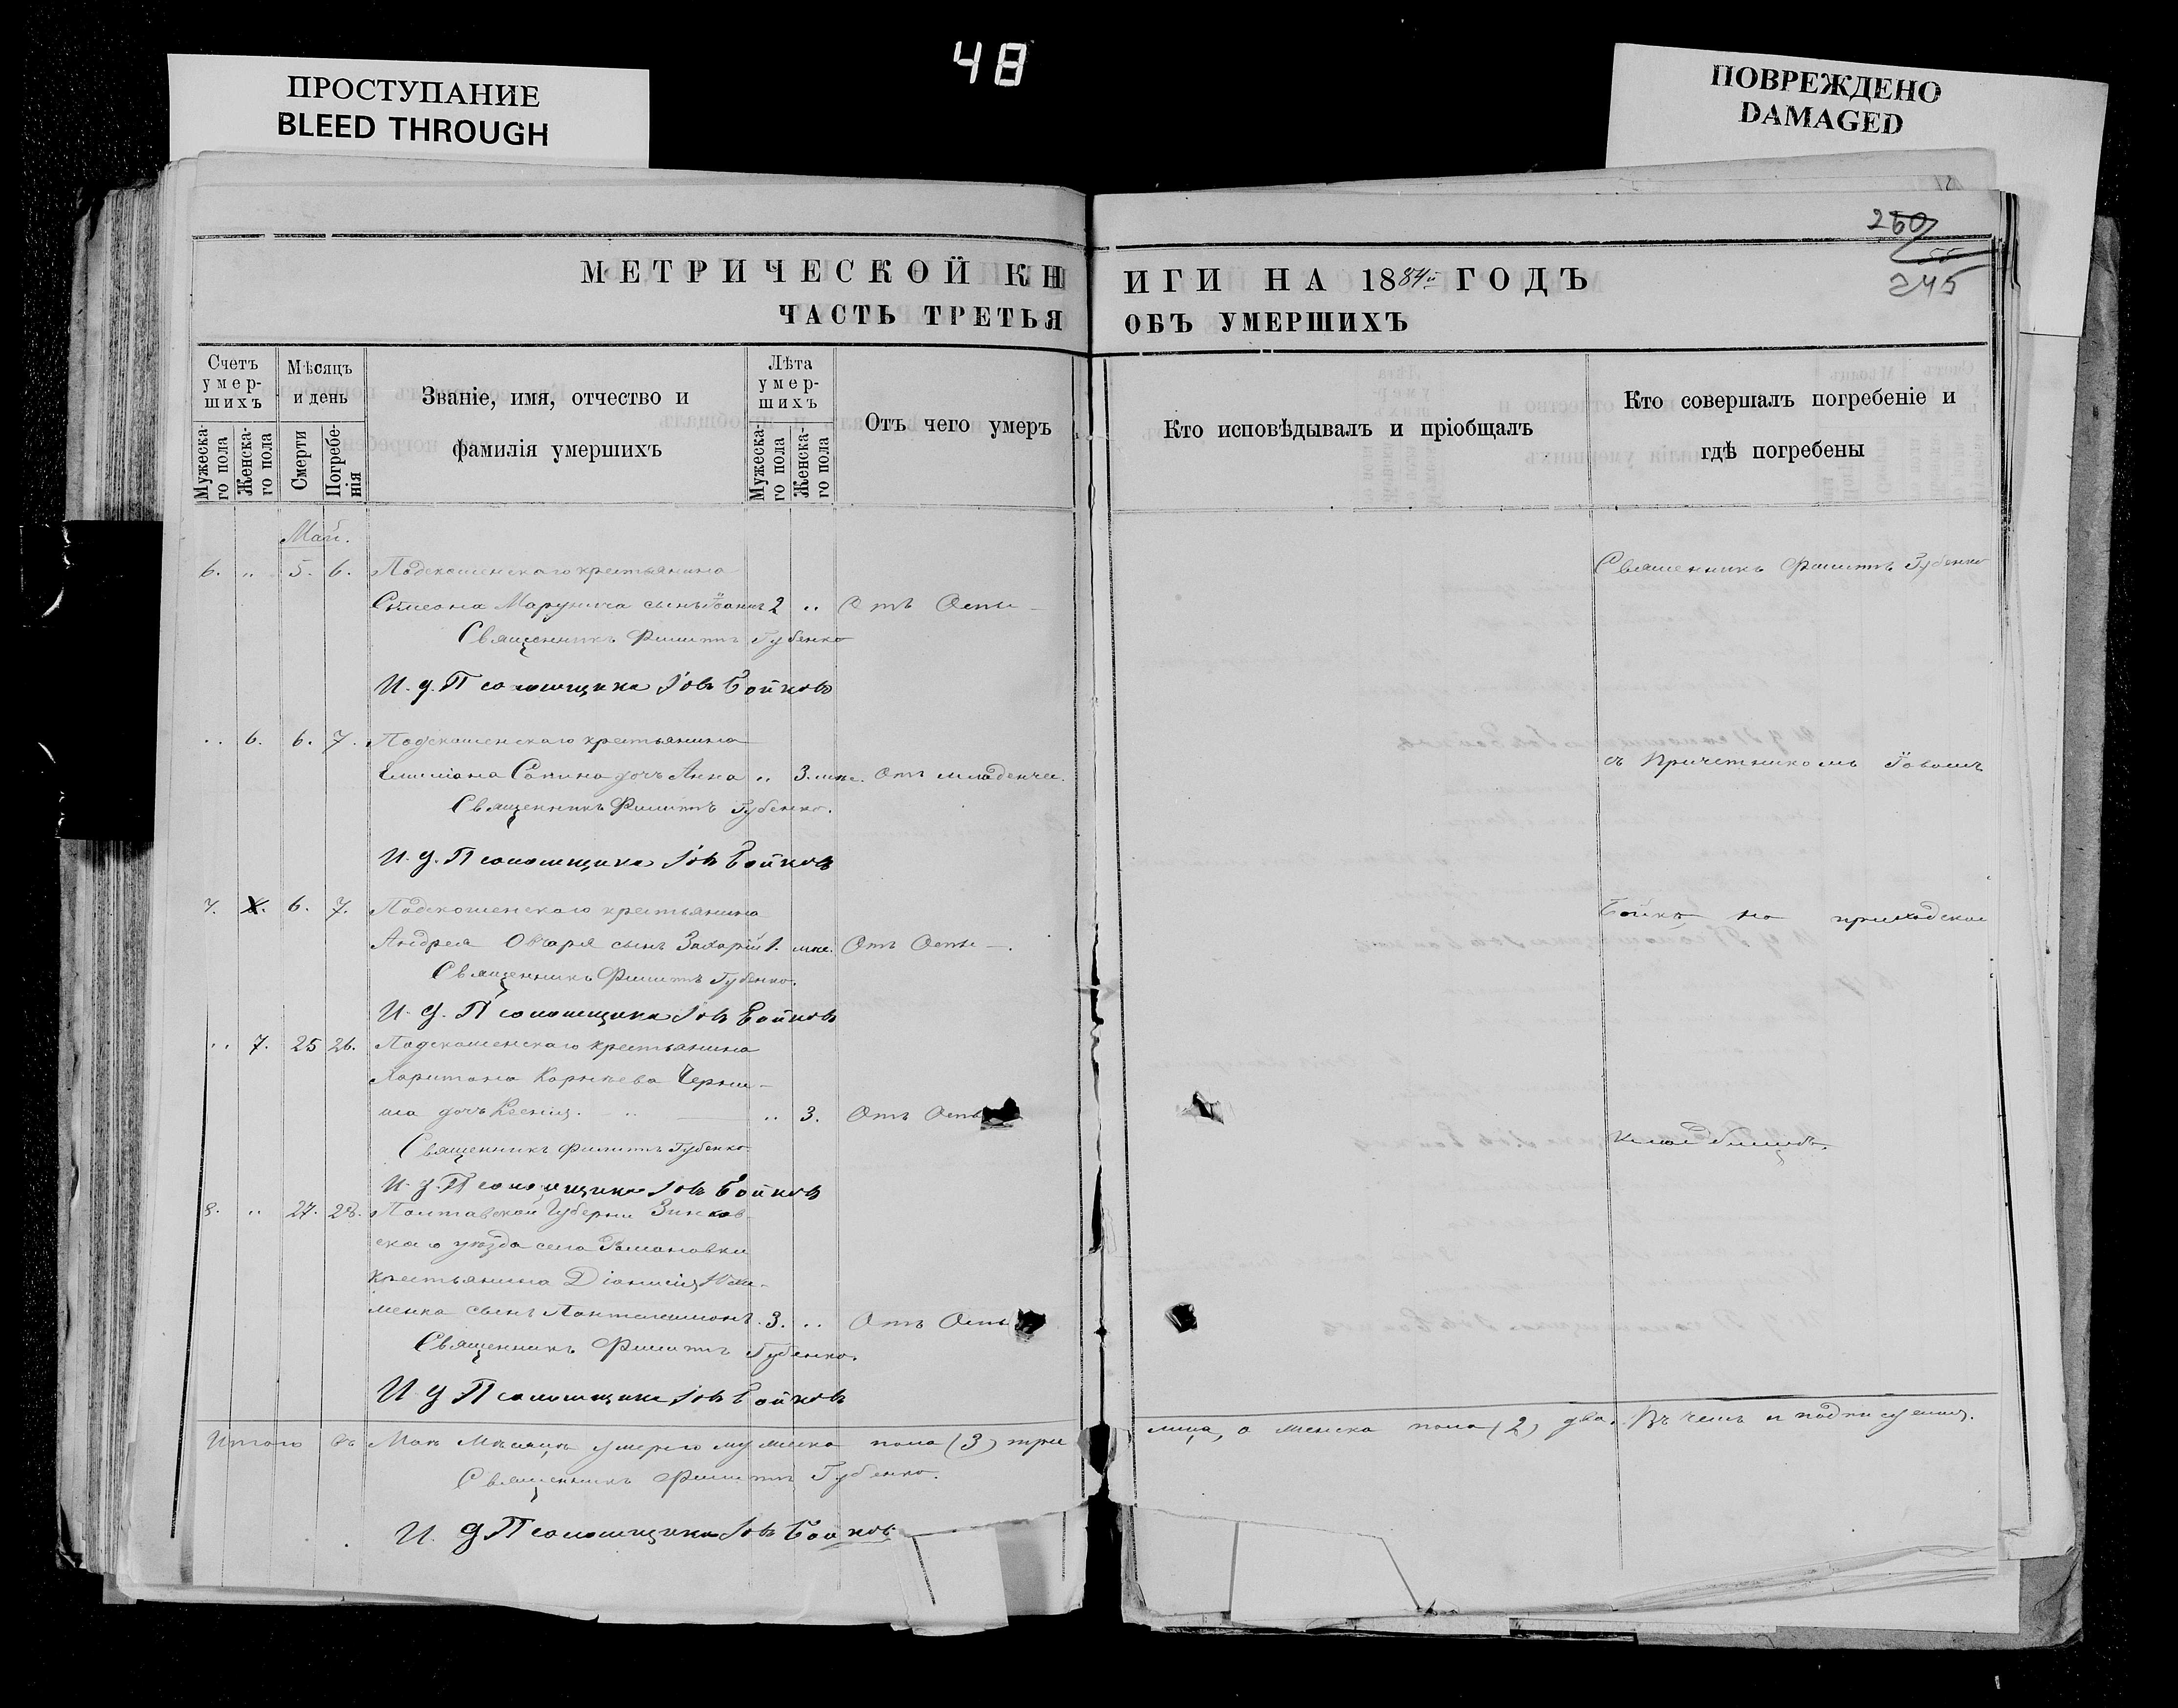 48
ПРОСТУПАНИЕ
BLEED THROUGH
ПОВРЕЖДЕНО
DAMAGED
250
55
245
МЕТРИЧЕСКОЙ КНИГИ НА 1884й ГОДЪ
ЧАСТЬ ТРЕТЬЯ ОБЪ УМЕРШИХЪ
Счетъ умер-шихъ
Мужеска-го пола
Женска-го пола
Мѣсяцъ и день
Смерти
Погребе-нія
Званіе, имя, отчество и
фамилія умершихъ
Лѣта умер-шихъ
Мужеска-го пола
Женска-го пола
Отъ чего умеръ
Кто исповѣдывалъ и пріобщалъ
Кто совершалъ погребеніе и
гдѣ погребены
Май.
6. „ 5. 6. крестьянина
Симеона сынъ Іоаннъ 2 „ Отъ Оспы
Священникъ Филиппъ Губенко
И. д. Псаломщика Іовъ Бойковъ
„ 6. 6. 7. крестьянина
дочь Анна „ 3. мѣс. Отъ младенчес.
Священникъ Филиппъ Губенко.
И. д. Псаломщика Іовъ Бойковъ
7. 6. 7. крестьянина
Андрея Овчаря сынъ Захарій 1. мѣс. Отъ Оспы
Священникъ Филиппъ Губенко.
И. д. Псаломщика Іовъ Бойковъ
„ 7. 25 26. крестьянина
Харитона Корнѣева Черны-
ша дочь Ксенія. „ 3. Отъ Оспы
Священникъ Филиппъ Губенко
И. д. Псаломщика Іовъ Бойковъ
8. „ 27. 28. Полтавской Губерніи Зинков-
скаго уѣзда села
крестьянина Діонисія
менка сынъ Пантелеимонъ. 3. „ Отъ Оспы
Священникъ Филиппъ Губенко.
И д Псаломщика Іовъ Бойковъ
Священникъ Филиппъ Губенко
съ Причетникомъ Іовомъ
Бойк на приходскомъ
кладбищѣ.
Итого въ Маѣ Мѣсяцѣ умерло мужеска пола (3) три лица, а женска пола (2) два. Въ чемъ и подписуемся.
Священникъ Филиппъ Губенко.
И. д Псаломщика Іовъ Бойковъ